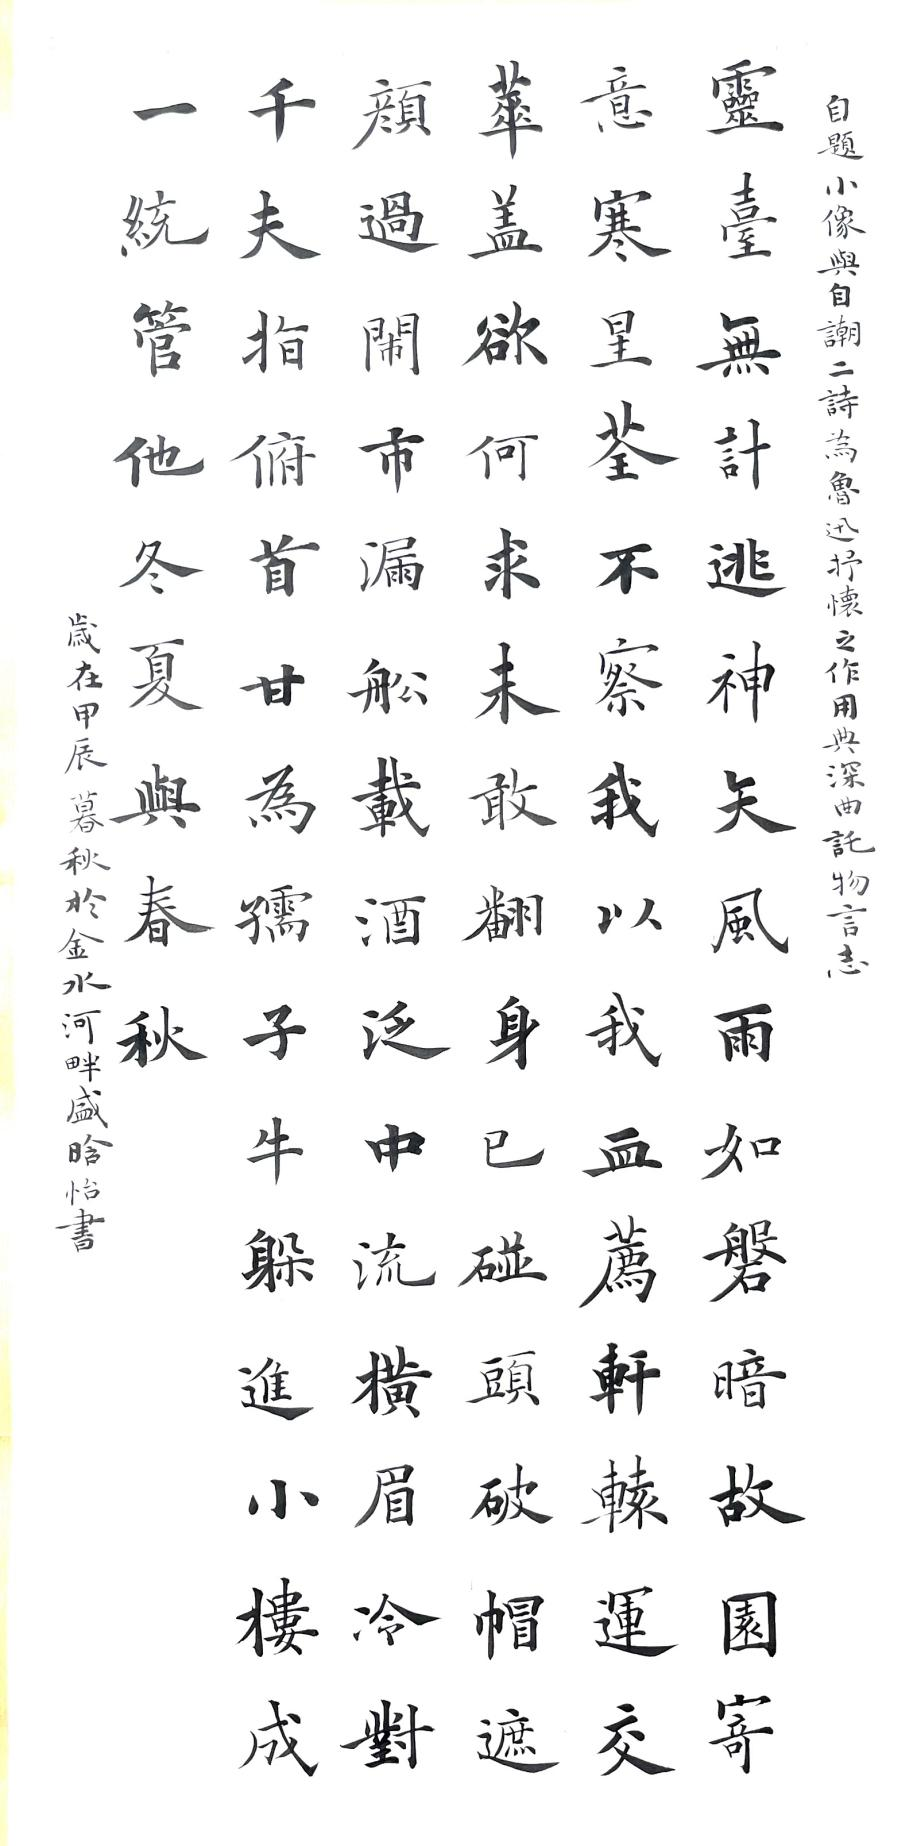 自題小像與自謿二詩為魯迅抒懷之作用典深曲託物言志
靈臺無計逃神矢風雨如磐暗故園寄
意寒星荃不察我以我血薦軒轅運交
華蓋欲何求未敢翻身已碰頭破帽遮
顏過鬧市漏舩載酒泛中流橫眉冷對
千夫指俯首甘為孺子牛躲進小樓成
一統管他冬夏與春秋
歲在甲辰暮秋於金水河畔盛晗怡書